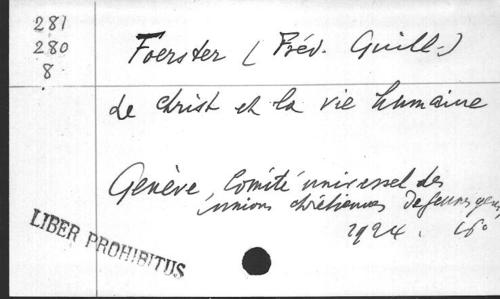 281
280
8
Foerster (Fréd. Guill.)
Le Christ et la vie humaine
Genève, Comité universel des
unions chrétiennes de jeunes gens,
1924. 16°
LIBER PROHIBITUS